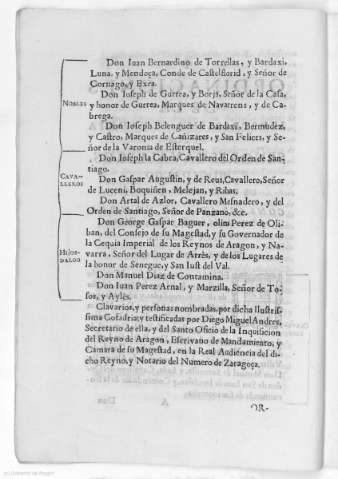 Don Iuan Bernardino de Torrellas, y Bardaxi,
Luna, y Mendoça, Conde de Castelflorid, y Señor de
Cornago, y Exea.
Don Ioseph de Gurrea, y Borja, Señor de la Casa,
NOBLES
y honor de Gurrea, Marques de Navarrens, y de Ca-
brega.
Don Ioseph Belenguer de Bardaxi, Bermudez,
y Castro, Marques de Cañizares, y San Felices, y Se-
ñor de la Varonia de Esterquel.
Don Ioseph la Cabra, Cavallero del Orden de San-
tiago.
CAVA-
LLEROS
Don Gaspar Augustin, y de Reus, Cavallero, Señor
de Luceni, Boquiñen, Melejan, y Ribas.
Don Artal de Azlor, Cavallero Mesnadero, y del
Orden de Santiago, Señor de Panzano, &c.
Don George Gaspar Baguer, olim Perez de Oli-
ban, del Consejo de su Magestad, y su Governador de
la Cequia Imperial de los Reynos de Aragon, y Na-
HIJOS-
DALGO
varra, Señor del Lugar de Arrès, y de los Lugares de
la honor de Senegue, y San Iust del Val.
Don Manuel Diaz de Contamina.
Don Iuan Perez Arnal, y Marzilla, Señor de To-
sos, y Aylès.
Clavarios, y personas nombradas, por dicha Ilustris-
sima Cofadria; y testificadas por Diego Miguel Andres,
Secretario de ella, y del Santo Oficio de la Inquisicion
del Reyno de Aragon, Escrivano de Mandamiento, y
Camara de su Magestad, en la Real Audiencia del di-
cho Reyno, y Notario del Numero de Zaragoça.
OR-